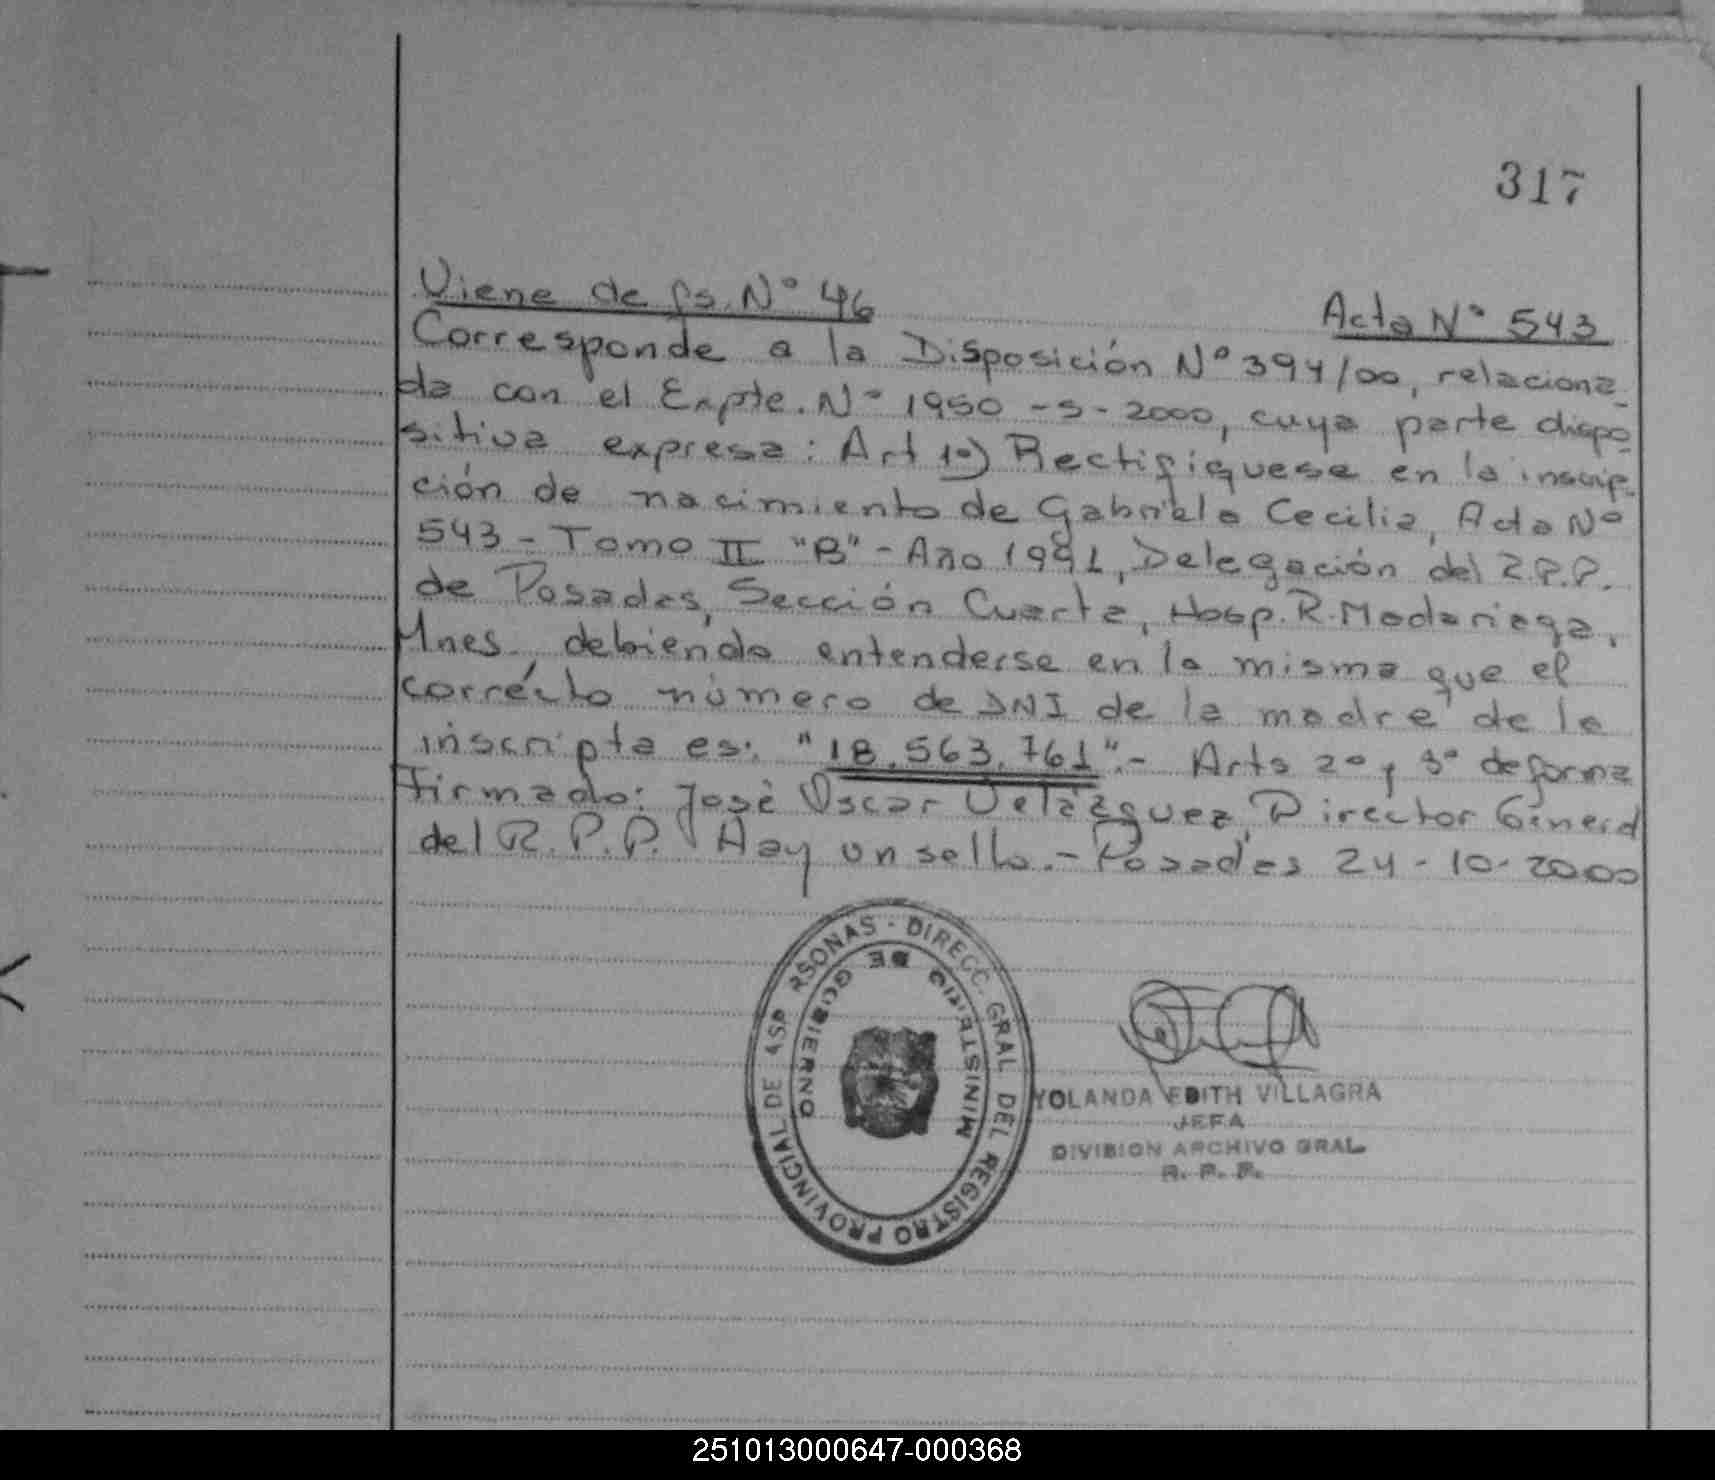 317
Viene de fs. N° 46
Acta N° 543
Corresponde a la Disposición N° 394/00, relaciona_
da con el Expte. N° 1950 - S - 2000, cuya parte dispo_
sitiva expresa: Art 1°) Rectifiquese en la inscrip_
ción de nacimiento de Gabriela Cecilia, Acta N°
543 - Tomo II "B" - Año 1991, Delegación del R.P.P.
de Posadas, Sección Cuarta, Hosp. R. Madariaga,
Mnes, debiendo entenderse en la misma que el
correcto número de DNI de la madre de la
inscripta es: "18.563.761".- Arts 2° y 3° de forma
Firmado: José Oscar Velázquez, Director General
del R.P.P. Hay un sello.- Posadas 24-10-2000
REGISTRO PROVINCIAL DE RSONAS - DIRECC. GRAL DEL
MINISTERIO DE GOBIERNO
YOLANDA EDITH VILLAGRA
JEFA
DIVISION ARCHIVO GRAL
R. P. P.
251013000647-000368